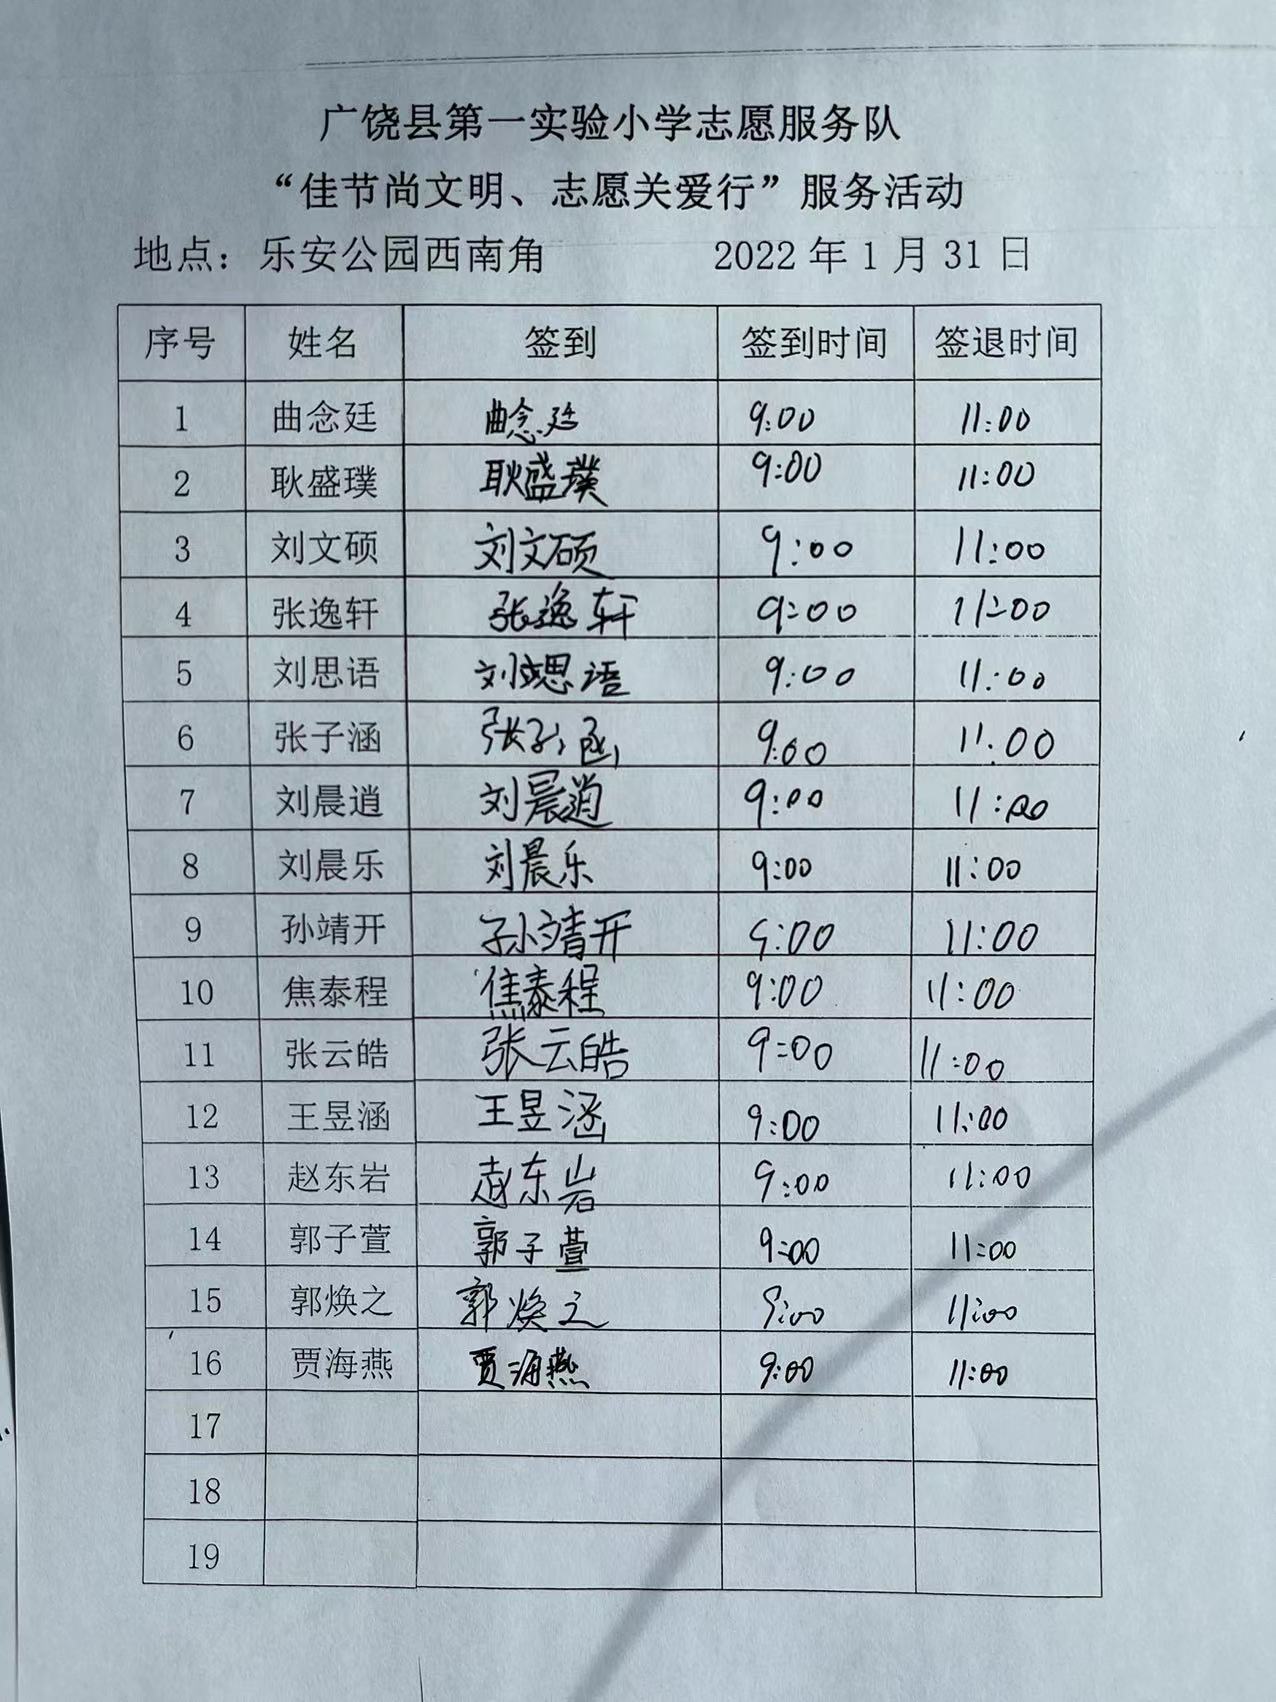 广饶县第一实验小学志愿服务队
“佳节尚文明、志愿关爱行”服务活动
地点：乐安公园西南角 2022年1月31日
序号 姓名 签到 签到时间 签退时间
1 曲念廷 曲念廷 9:00 11:00
2 耿盛璞 耿盛璞 9:00 11:00
3 刘文硕 刘文硕 9:00 11:00
4 张逸轩 张逸轩 9:00 11:00
5 刘思语 刘思语 9:00 11:00
6 张子涵 张子涵 9:00 11:00
7 刘晨逍 刘晨逍 9:00 11:00
8 刘晨乐 刘晨乐 9:00 11:00
9 孙靖开 孙靖开 9:00 11:00
10 焦泰程 焦泰程 9:00 11:00
11 张云皓 张云皓 9:00 11:00
12 王昱涵 王昱涵 9:00 11:00
13 赵东岩 赵东岩 9:00 11:00
14 郭子萱 郭子萱 9:00 11:00
15 郭焕之 郭焕之 9:00 11:00
16 贾海燕 贾海燕 9:00 11:00
17
18
19